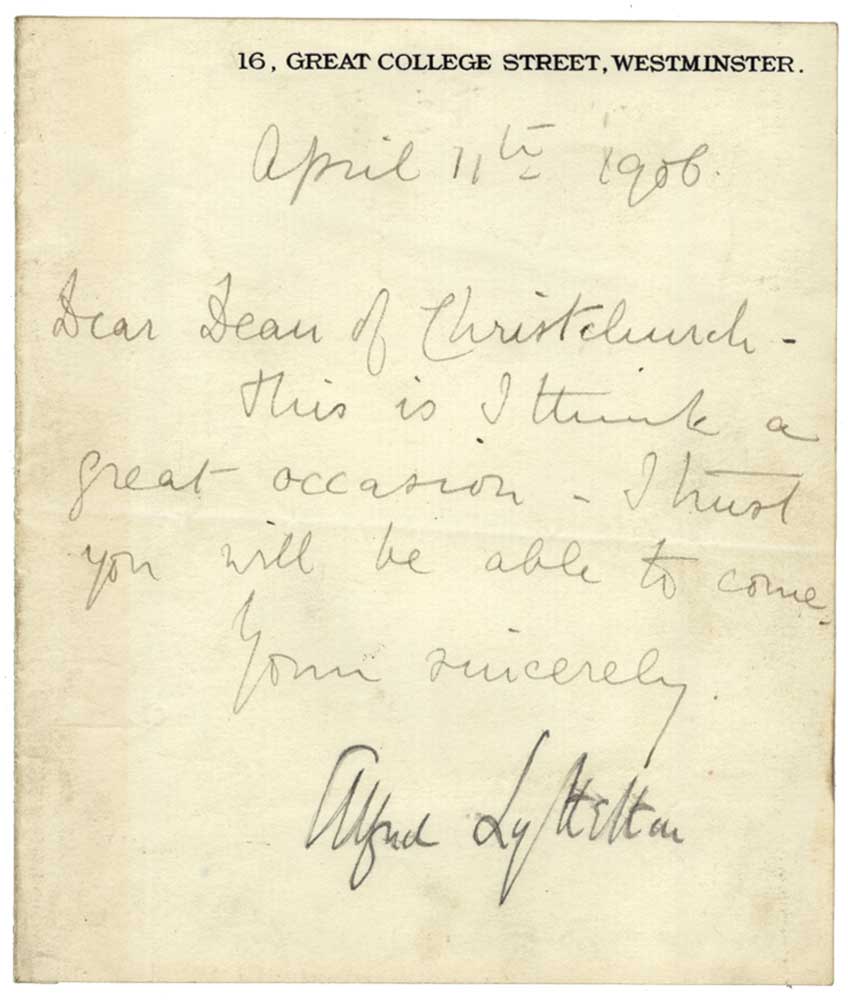 16, GREAT COLLEGE STREET, WESTMINSTER.
April 11th 1906.
Dear Dean of Christchurch -
this is I think a
great occasion - I trust
you will be able to come.
Yours sincerely.
Alfred Lyttelton